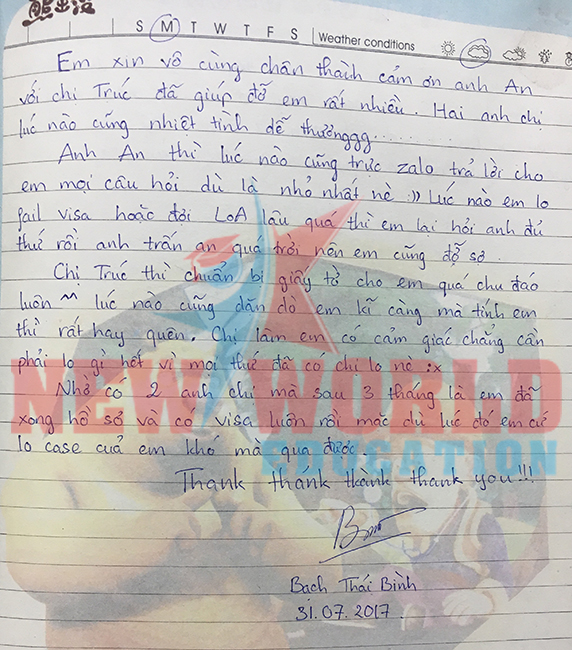 熊出没
S M T W T F S Weather conditions
Em xin vô cùng chân thành cảm ơn anh An
với chị Trúc đã giúp đỡ em rất nhiều. Hai anh chị
lúc nào cũng nhiệt tình dễ thưởngggg..........
Anh An thì lúc nào cũng trực zalo trả lời cho
em mọi câu hỏi dù là nhỏ nhất nè :)) Lúc nào em lo
fail visa hoặc đợi LoA lâu quá thì em lại hỏi anh đủ
thứ rồi anh trấn an quá trời nên em cũng đỡ sợ.
Chị Trúc thì chuẩn bị giấy tờ cho em quá chu đáo
luôn ^^ lúc nào cũng dặn dò em kĩ càng mà tính em
thì rất hay quên. Chị làm em có cảm giác chẳng cần
phải lo gì hết vì mọi thứ đã có chị lo nè :x
Nhờ có 2 anh chị mà sau 3 tháng là em đã
xong hồ sơ và có visa luôn rồi mặc dù lúc đó em cứ
lo case của em khó mà qua được.
NEW WORLD
EDUCATION
Thank thánk thành thank you!!!
Bạch Thái Bình
31.07.2017